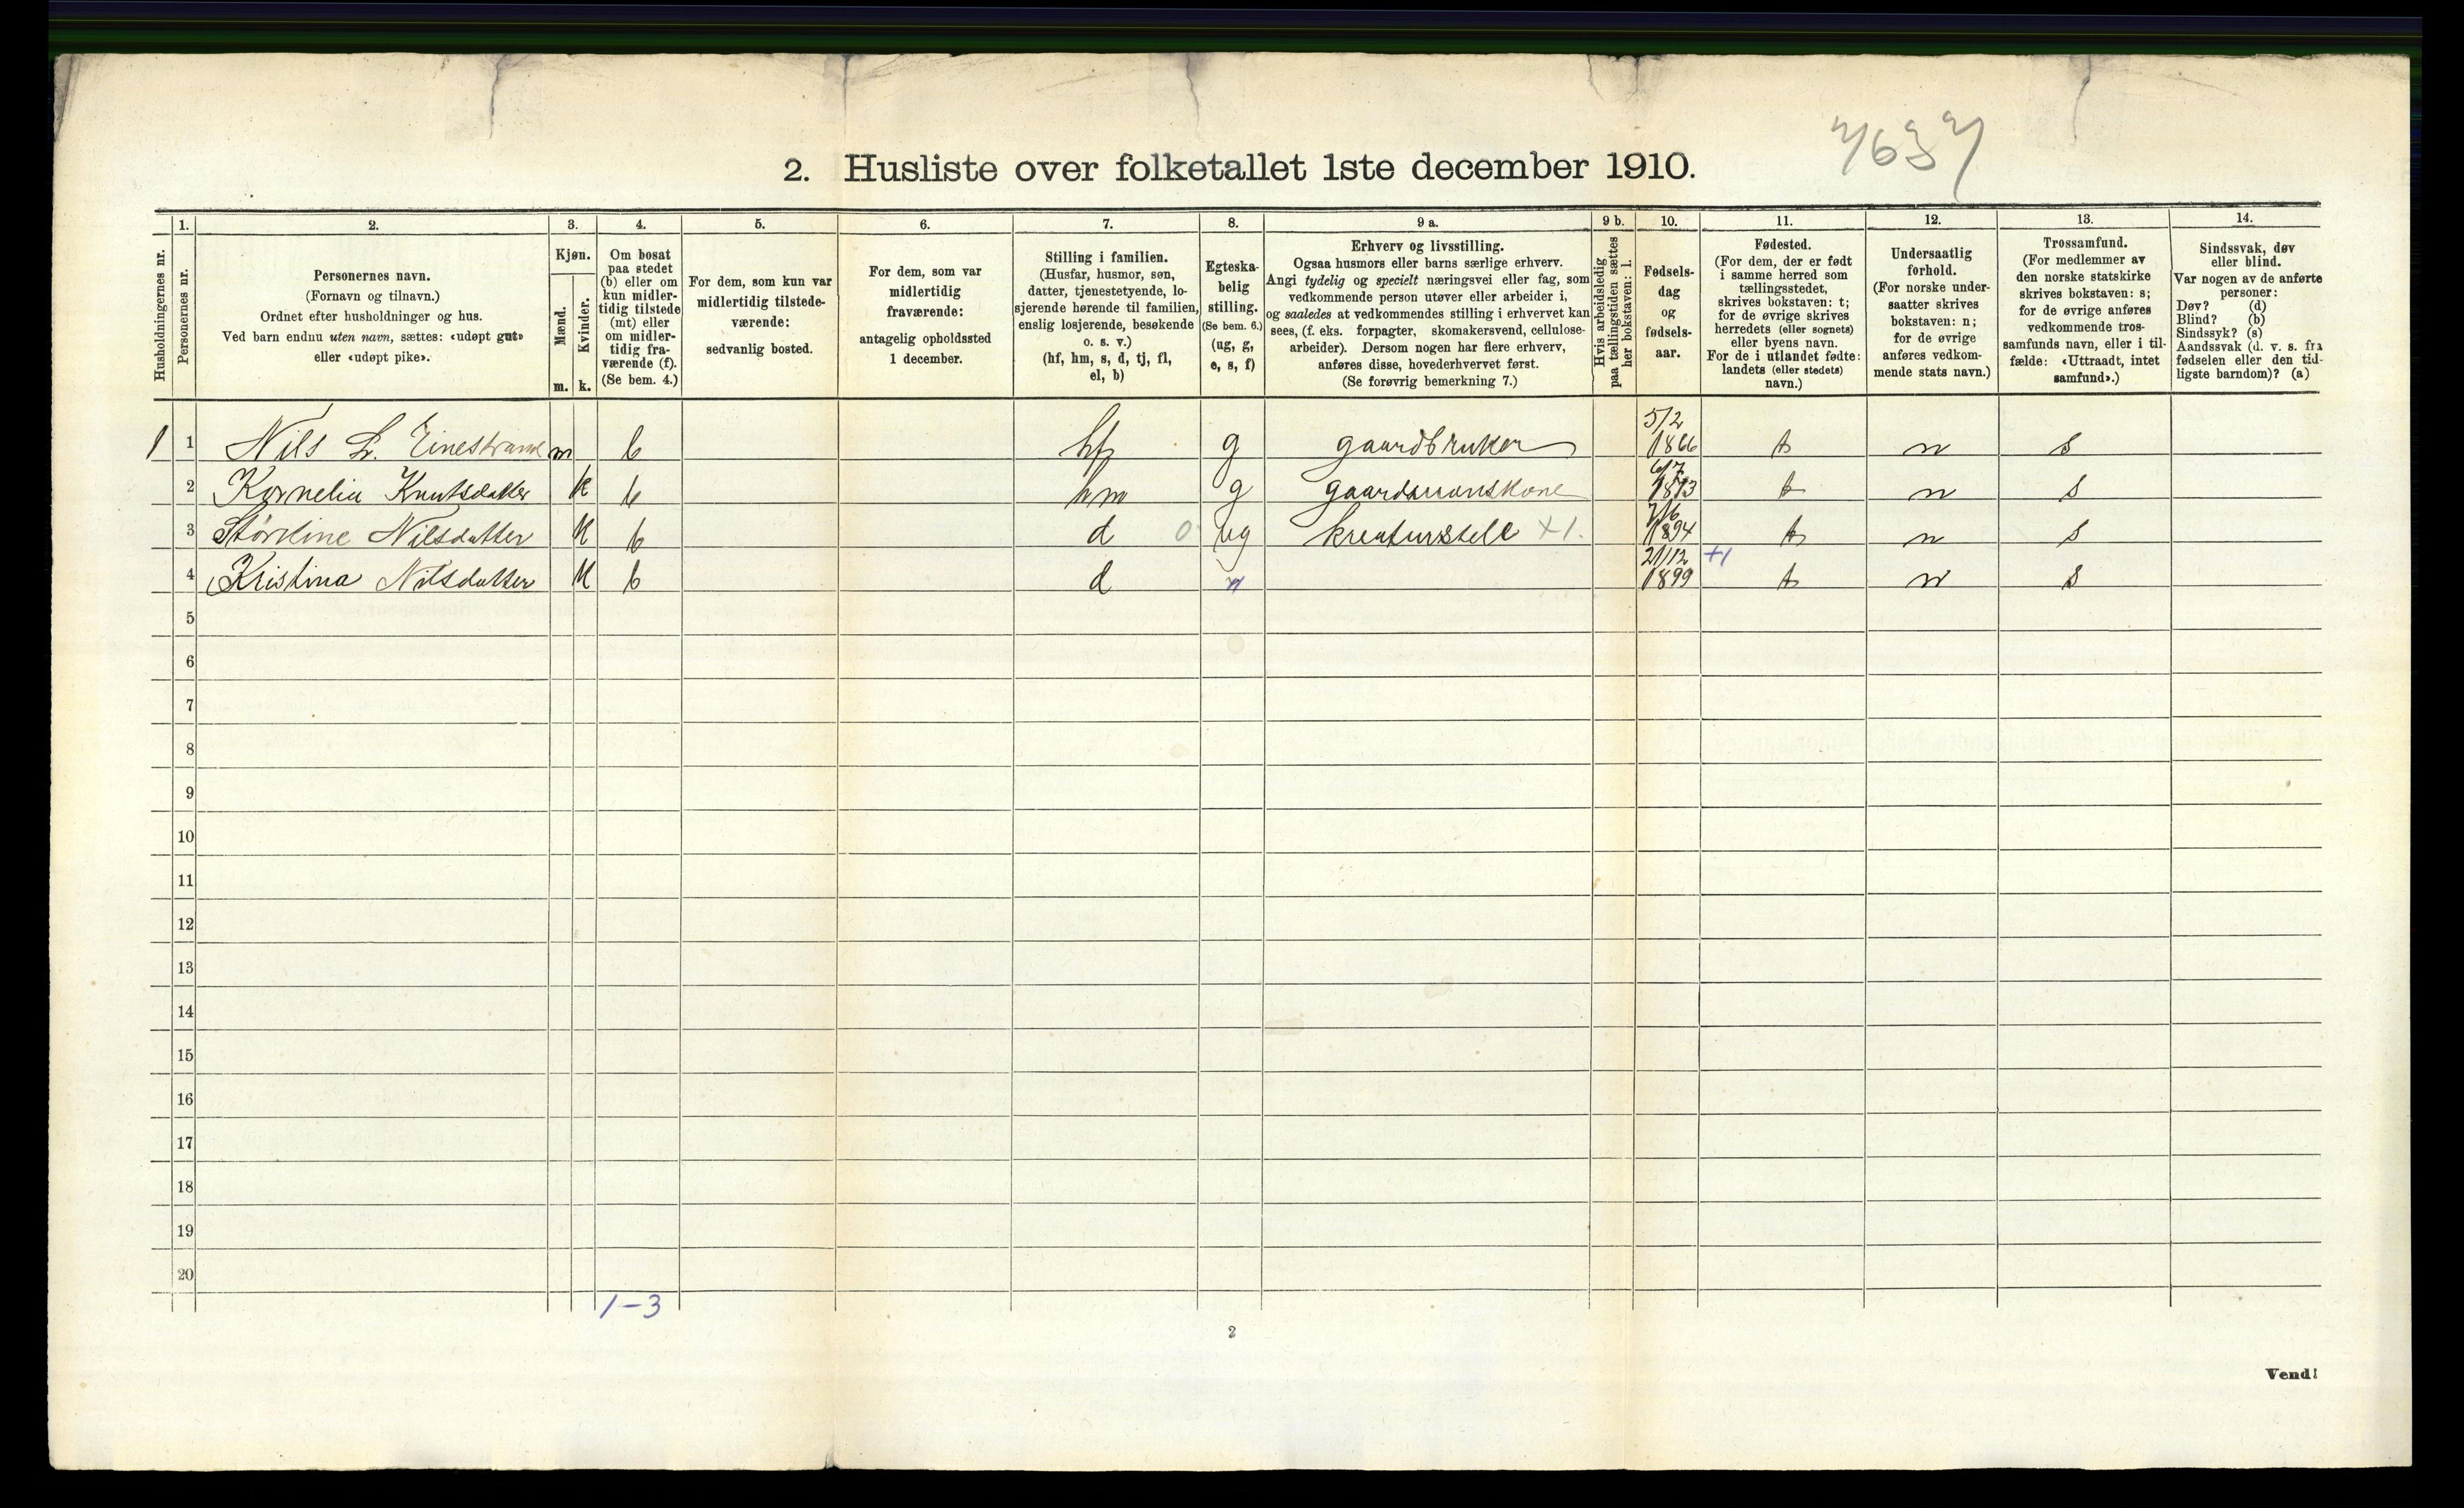 7637
2. Husliste over folketallet 1ste december 1910.
Husholdningernes nr.
1.
Personernes nr.
2.
Personernes navn.
(Fornavn og tilnavn.)
Ordnet efter husholdninger og hus.
Ved barn endnu uten navn, sættes: «udøpt gut»
eller «udøpt pike».
3.
Kjøn.
Mænd.
Kvinder.
m. k.
4.
Om bosat
paa stedet
(b) eller om
kun midler-
tidig tilstede
(mt) eller
om midler-
tidig fra-
værende (f).
(Se bem. 4.)
5.
For dem, som kun var
midlertidig tilstede-
værende:
sedvanlig bosted.
6.
For dem, som var
midlertidig
fraværende:
antagelig opholdssted
1 december.
7.
Stilling i familien.
(Husfar, husmor, søn,
datter, tjenestetyende, lo-
sjerende hørende til familien,
enslig losjerende, besøkende
o. s. v.)
(hf, hm, s, d, tj, fl,
el, b)
8.
Egteska-
belig
stilling.
(Se bem. 6.)
(ug, g,
e, s, f)
9 a.
Erhverv og livsstilling.
Ogsaa husmors eller barns særlige erhverv.
Angi tydelig og specielt næringsvei eller fag, som
vedkommende person utøver eller arbeider i,
og saaledes at vedkommendes stilling i erhvervet kan
sees, (f. eks. forpagter, skomakersvend, cellulose-
arbeider). Dersom nogen har flere erhverv,
anføres disse, hovederhvervet først.
(Se forøvrig bemerkning 7.)
9 b.
Hvis arbeidsledig
paa tællingstiden sættes
her bokstaven: l.
10.
Fødsels-
dag
og
fødsels-
aar.
11.
Fødested.
(For dem, der er født
i samme herred som
tællingsstedet,
skrives bokstaven: t;
for de øvrige skrives
herredets (eller sognets)
eller byens navn.
For de i utlandet fødte:
landets (eller stedets)
navn.)
12.
Undersaatlig
forhold.
(For norske under-
saatter skrives
bokstaven: n;
for de øvrige
anføres vedkom-
mende stats navn.)
13.
Trossamfund.
(For medlemmer av
den norske statskirke
skrives bokstaven: s;
for de øvrige anføres
vedkommende tros-
samfunds navn, eller i til-
fælde: «Uttraadt, intet
samfund».)
14.
Sindssvak, døv
eller blind.
Var nogen av de anførte
personer:
Døv? (d)
Blind? (b)
Sindssyk? (s)
Aandssvak (d. v. s. fra
fødselen eller den tid-
ligste barndom)? (a)
1 1 Nils L. Einestrand m b hf g gaardbruker 5/2 1866 t n s
2 Kornelia Knutsdatter k b hm g gaardmanskone 6/7 1873 t n s
3 Nilsdatter k b d 0 ug kreaturstell +1. 7/6 1894 t n s
4 Kristina Nilsdatter k b d 21/12 1899 +1 t n s
5
6
7
8
9
10
11
12
13
14
15
16
17
18
19
20
1-3
2
Vend!